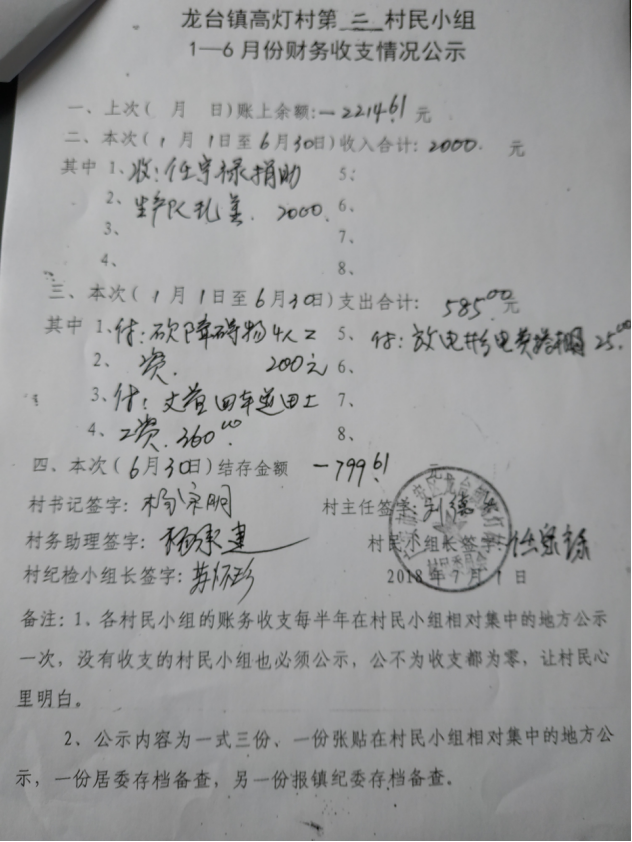 龙台镇高灯村第 二 村民小组
1—6月份财务收支情况公示
一、上次( 月 日)账上余额:-2214.61 元
二、本次(1月1日至6月30日)收入合计:2000. 元
其中 1、收:任字禄捐助 5、
2、生产队 2000. 6、
3、 7、
4、 8、
三、本次(1月1日至6月30日)支出合计: 585.00元
其中 1、付:砍障碍物4人工 5、付:放电影电费 25.00
2、资. 200元 6、
3、付: 田土 7、
4、工资.360.00. 8、
四、本次(6月30日)结存金额 -799.61 元
村书记签字: 村主任签字:
村务助理签字: 村民小组长签字:
村纪检小组长签字: 2018年7月1日
备注:1、各村民小组的账务收支每半年在村民小组相对集中的地方公示
一次,没有收支的村民小组也必须公示,公不为收支都为零,让村民心
里明白。
2、公示内容为一式三份、一份张贴在村民小组相对集中的地方公
示,一份居委存档备查,另一份报镇纪委存档备查。